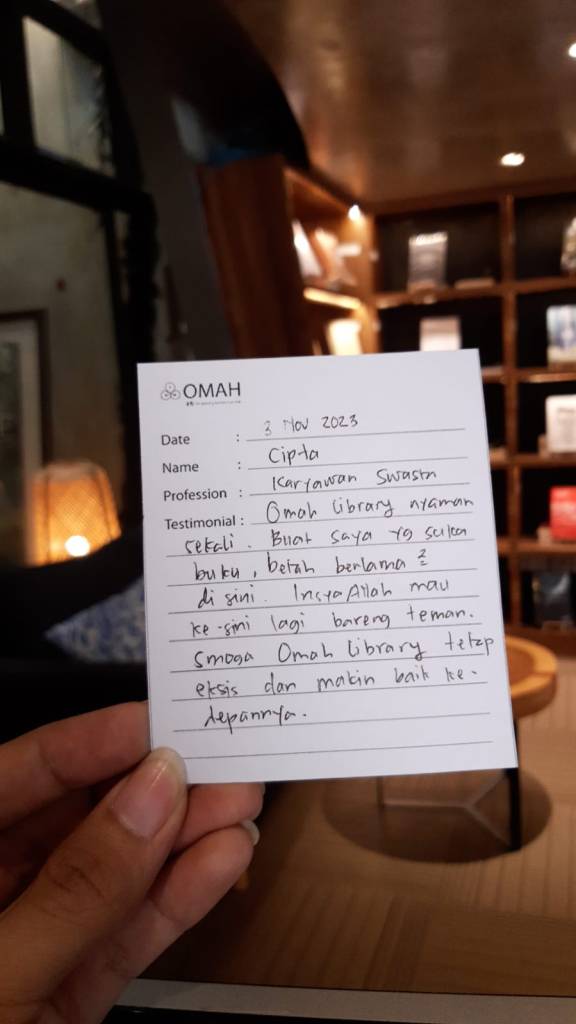 OMAH
Date : 3 Nov 2023
Name : Cipta
Profession : Karyawan Swasta
Testimonial : Omah Library nyaman
sekali. Buat saya yg suka
buku, betah berlama 2
di sini. InsyaAllah mau
ke-sini lagi bareng teman.
Smoga Omah Library tetap
eksis dan makin baik ke-
depannya.